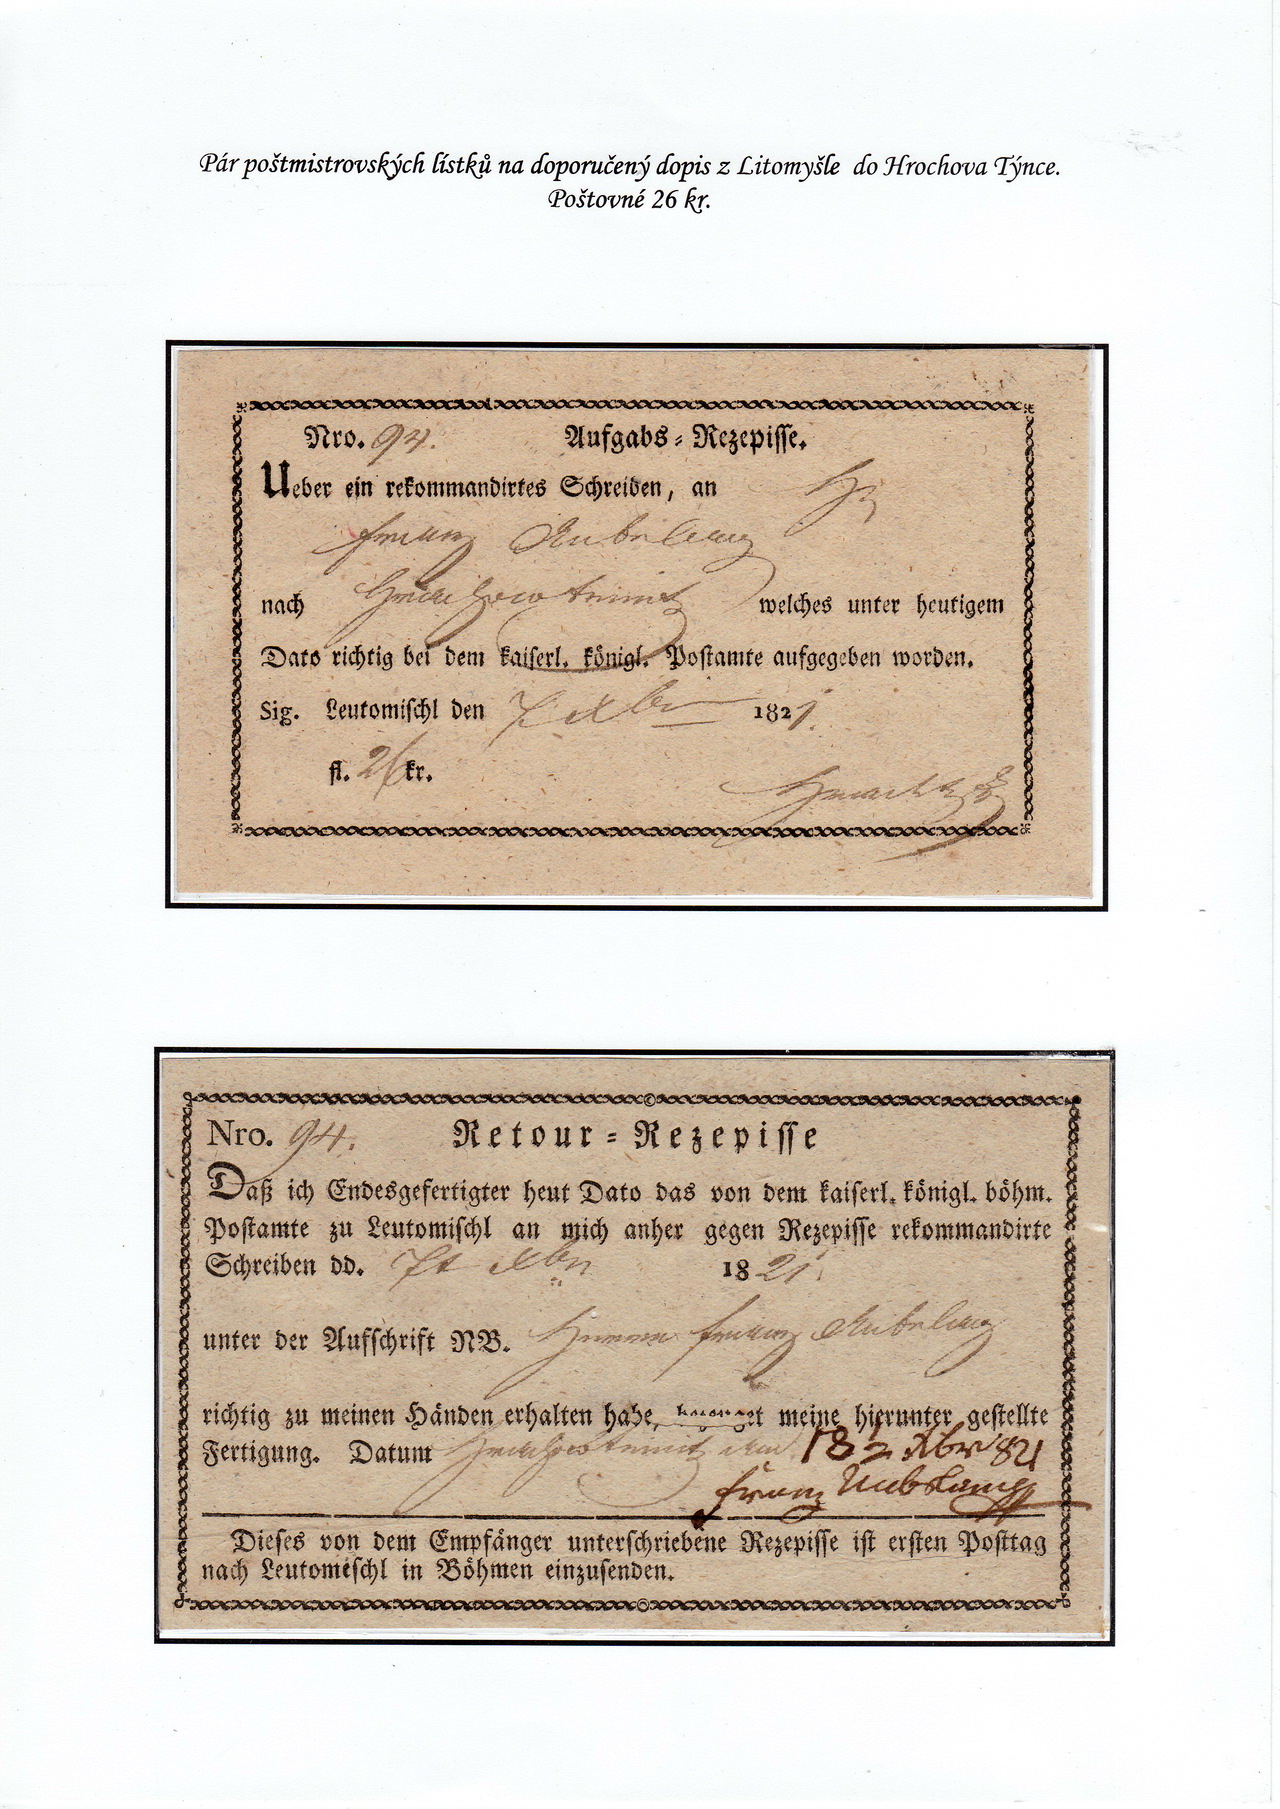 Pár poštmistrovských lístků na doporučený dopis z Litomyšle do Hrochova Týnce.
Poštovné 26 kr.
Nro. 94. Aufgabs = Rezepisse.
Ueber ein rekommandirtes Schreiben, an
Franz
nach welches unter heutigem
Dato richtig bei dem kaiserl. königl. Postamte aufgegeben worden.
Sig. Leutomischl den 7 Xbr 1821.
fl. 26 kr.
Nro. 94. Retour = Rezepisse
Daß ich Endesgefertigter heut Dato das von dem kaiserl. königl. böhm.
Postamte zu Leutomischl an mich anher gegen Rezepisse rekommandirte
Schreiben dd. 7t Xbr 1821.
unter der Aufschrift NB. Herrn Franz
richtig zu meinen Händen erhalten habe, bezeuget meine hierunter gestellte
Fertigung. Datum
Franz
Dieses von dem Empfänger unterschriebene Rezepisse ist ersten Posttag
nach Leutomischl in Böhmen einzusenden.